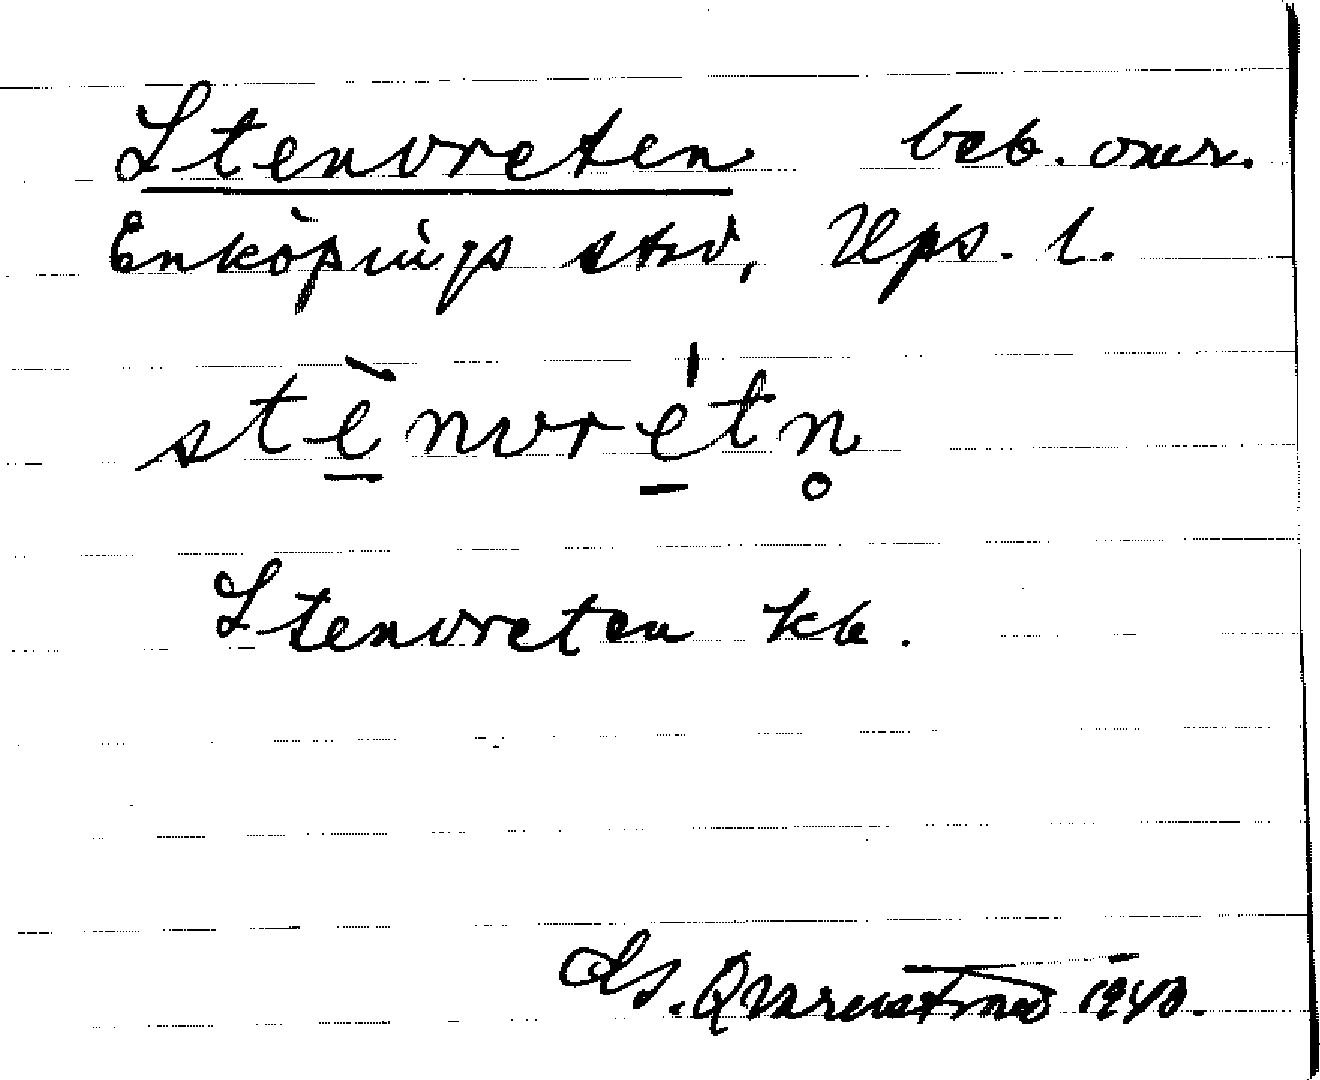 Stenvreten beb. omr.
Enköpings stad, Ups. l.
stè̱nvré̱tn̥
Stenvreten kb.
Ls. Qvarnström 1940.